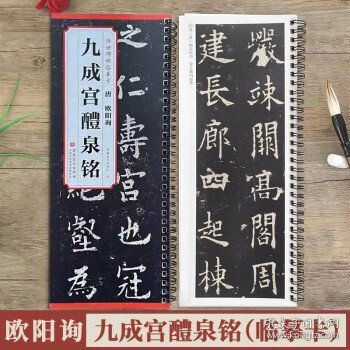 唐 欧阳询
九成宫醴泉铭
之仁壽宫也冠
絕壑為
巖竦闕高閣周
建長廊四起棟
欧阳询 九成宫醴泉铭(临摹卡)